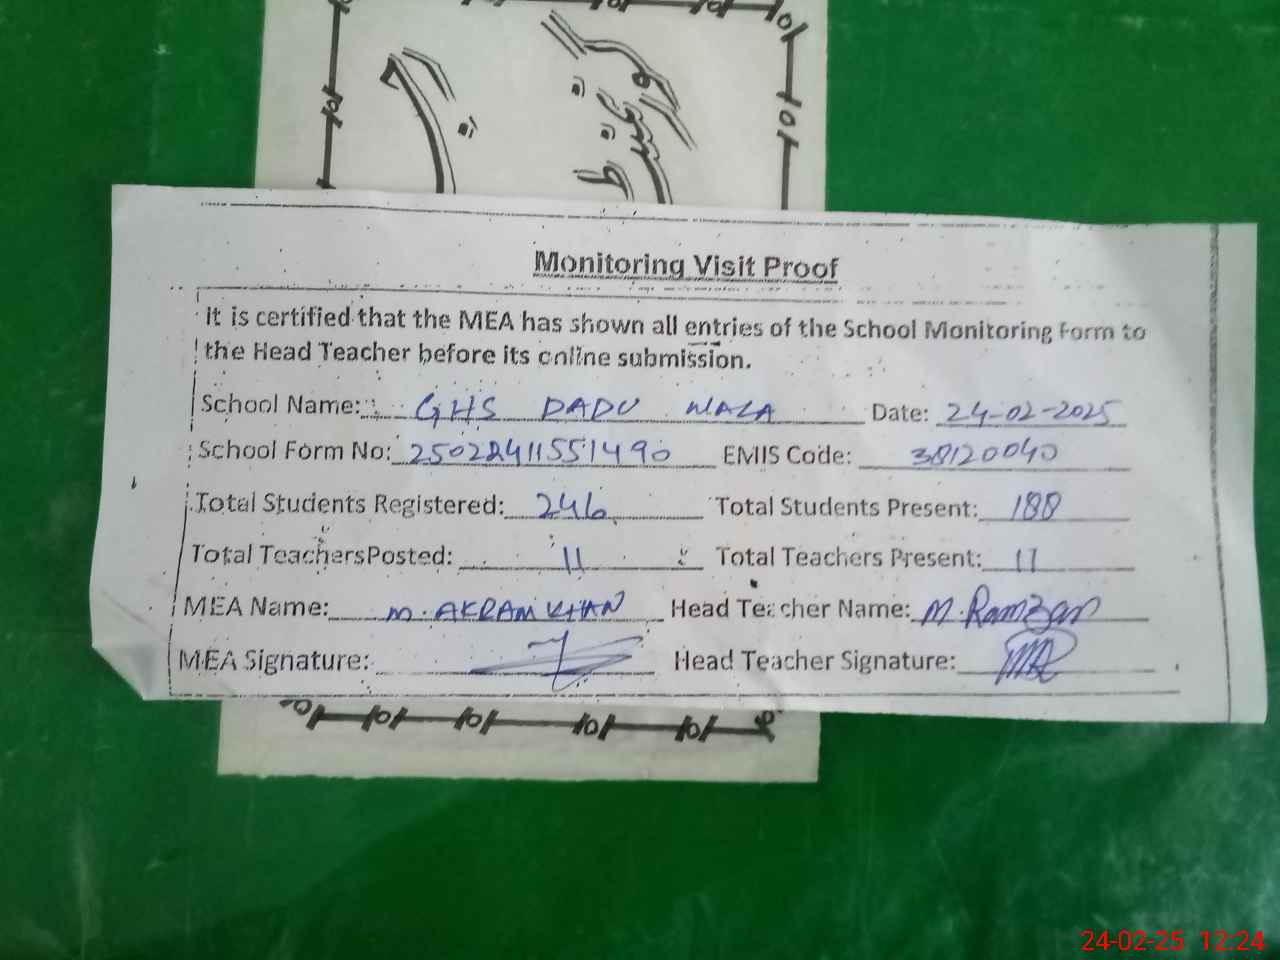 Monitoring Visit Proof
it is certified that the MEA has shown all entries of the School Monitoring Form to
the Head Teacher before its online submission.
School Name: GHS DADU WALA Date: 24-02-2025
School Form No: 25022411551490 EMIS Code: 38120040
Total Students Registered: 246 Total Students Present: 188
Total TeachersPosted: 11 Total Teachers Present: 11
MEA Name: M. AKRAM KHAN Head Teacher Name: M. Ramzan
MEA Signature: Head Teacher Signature:
24-02-25 12:24